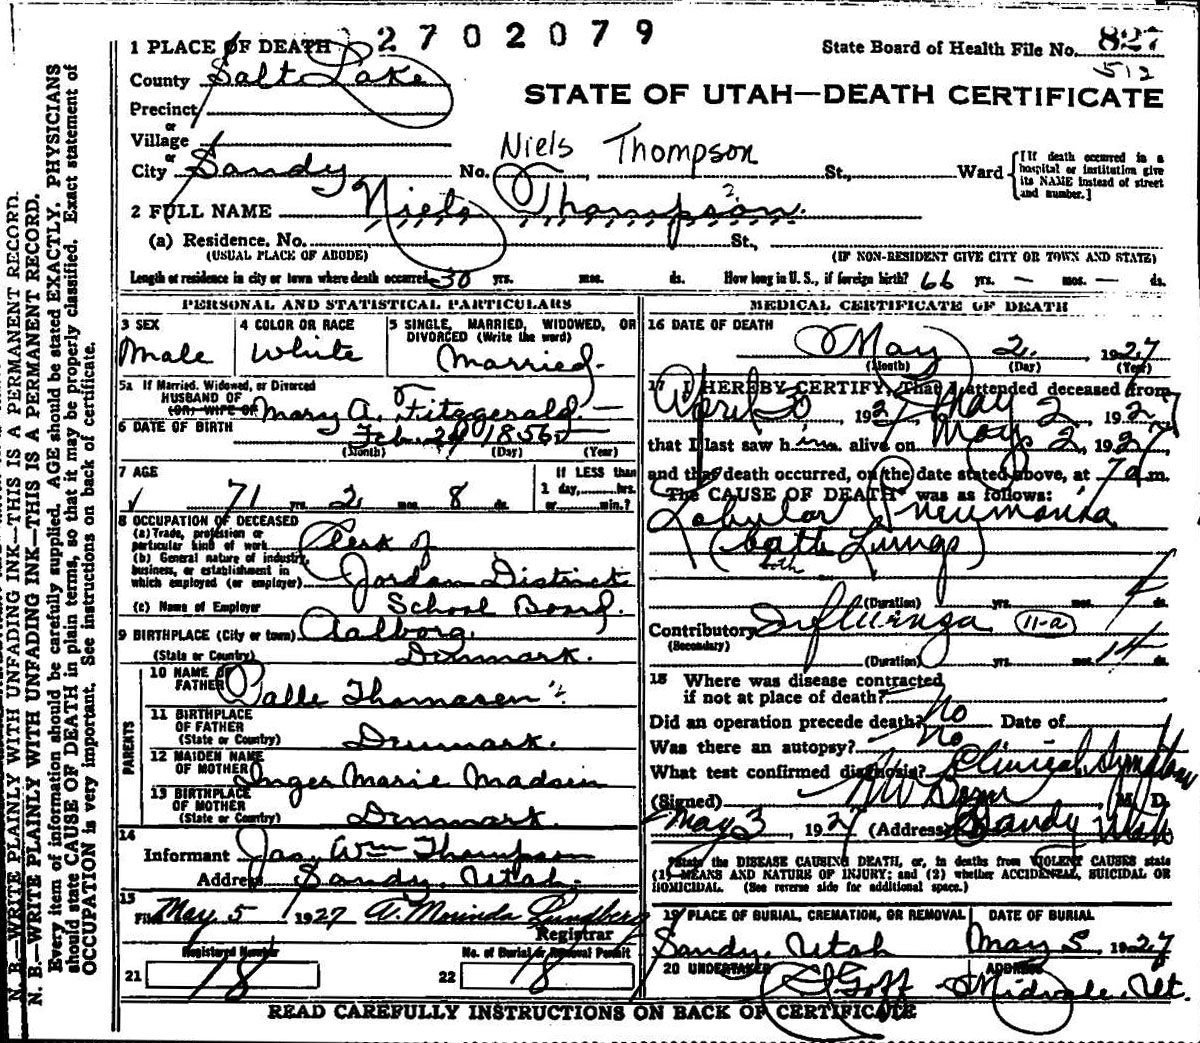 2702079
State Board of Health File No. 827
512
STATE OF UTAH—DEATH CERTIFICATE
1 PLACE OF DEATH
County Salt Lake
Precinct
or
Village
or
City Sandy No. St., Ward
[If death occurred in a hospital or institution give its NAME instead of street and number.]
Niels Thompson
2 FULL NAME Niels Thompson
(a) Residence. No. St.,
(USUAL PLACE OF ABODE) (IF NON-RESIDENT GIVE CITY OR TOWN AND STATE)
Length of residence in city or town where death occurred 30 yrs. mos. ds. How long in U. S., if foreign birth? 66 yrs. — mos. — ds.
PERSONAL AND STATISTICAL PARTICULARS
3 SEX
Male
4 COLOR OR RACE
White
5 SINGLE, MARRIED, WIDOWED, OR DIVORCED (Write the word)
Married.
5a If Married, Widowed, or Divorced
HUSBAND OF
(OR) WIFE OF Mary A. Fitzgerald
6 DATE OF BIRTH Feb. 24 1856
(Month) (Day) (Year)
7 AGE
71 yrs. 2 mos. 8 ds.
If LESS than
1 day, hrs.
or min.?
8 OCCUPATION OF DECEASED
(a) Trade, profession or
particular kind of work Clerk of
(b) General nature of industry,
business, or establishment in
which employed (or employer) Jordan District
(c) Name of Employer School Board.
9 BIRTHPLACE (City or town) Aalborg.
(State or Country) Denmark.
PARENTS
10 NAME OF
FATHER Palle Thomasen
11 BIRTHPLACE
OF FATHER
(State or Country) Denmark.
12 MAIDEN NAME
OF MOTHER Inger Marie Madsen
13 BIRTHPLACE
OF MOTHER
(State or Country) Denmark.
14
Informant Jas. Wm Thompson
Address Sandy, Utah.
15
Filed May 5 1927 A. Morinda Lundberg
Registrar
Registered Number
No. of Burial or Removal Permit
21 18
22 18
MEDICAL CERTIFICATE OF DEATH
16 DATE OF DEATH
May 2, 1927
(Month) (Day) (Year)
17 I HEREBY CERTIFY, That I attended deceased from
April 30, 1927 May 2, 1927
that I last saw him alive on May 2, 1927
and that death occurred, on the date stated above, at 7 a m.
The CAUSE OF DEATH was as follows:
Lobular Pneumonia
(both Lungs)
both
(Duration) yrs. mos. ds.
Contributory Influenza 11-a
(Secondary)
(Duration) yrs. mos. 14 ds.
18 Where was disease contracted
if not at place of death?
Did an operation precede death? No Date of
Was there an autopsy? No
What test confirmed diagnosis? Clinical Symptoms
(Signed) M. D.
May 3, 1927 (Address) Sandy Utah
State the DISEASE CAUSING DEATH, or, in deaths from VIOLENT CAUSES state
(1) MEANS AND NATURE OF INJURY; and (2) whether ACCIDENTAL, SUICIDAL OR
HOMICIDAL. (See reverse side for additional space.)
19 PLACE OF BURIAL, CREMATION, OR REMOVAL
Sandy, Utah
DATE OF BURIAL
May 5 1927
20 UNDERTAKER
Goff
ADDRESS
Midvale, Ut.
READ CAREFULLY INSTRUCTIONS ON BACK OF CERTIFICATE
N. B.—WRITE PLAINLY WITH UNFADING INK—THIS IS A PERMANENT RECORD.
N. B.—WRITE PLAINLY WITH UNFADING INK—THIS IS A PERMANENT RECORD.
Every item of information should be carefully supplied. AGE should be stated EXACTLY. PHYSICIANS
should state CAUSE OF DEATH in plain terms, so that it may be properly classified. Exact statement of
OCCUPATION is very important. See instructions on back of certificate.